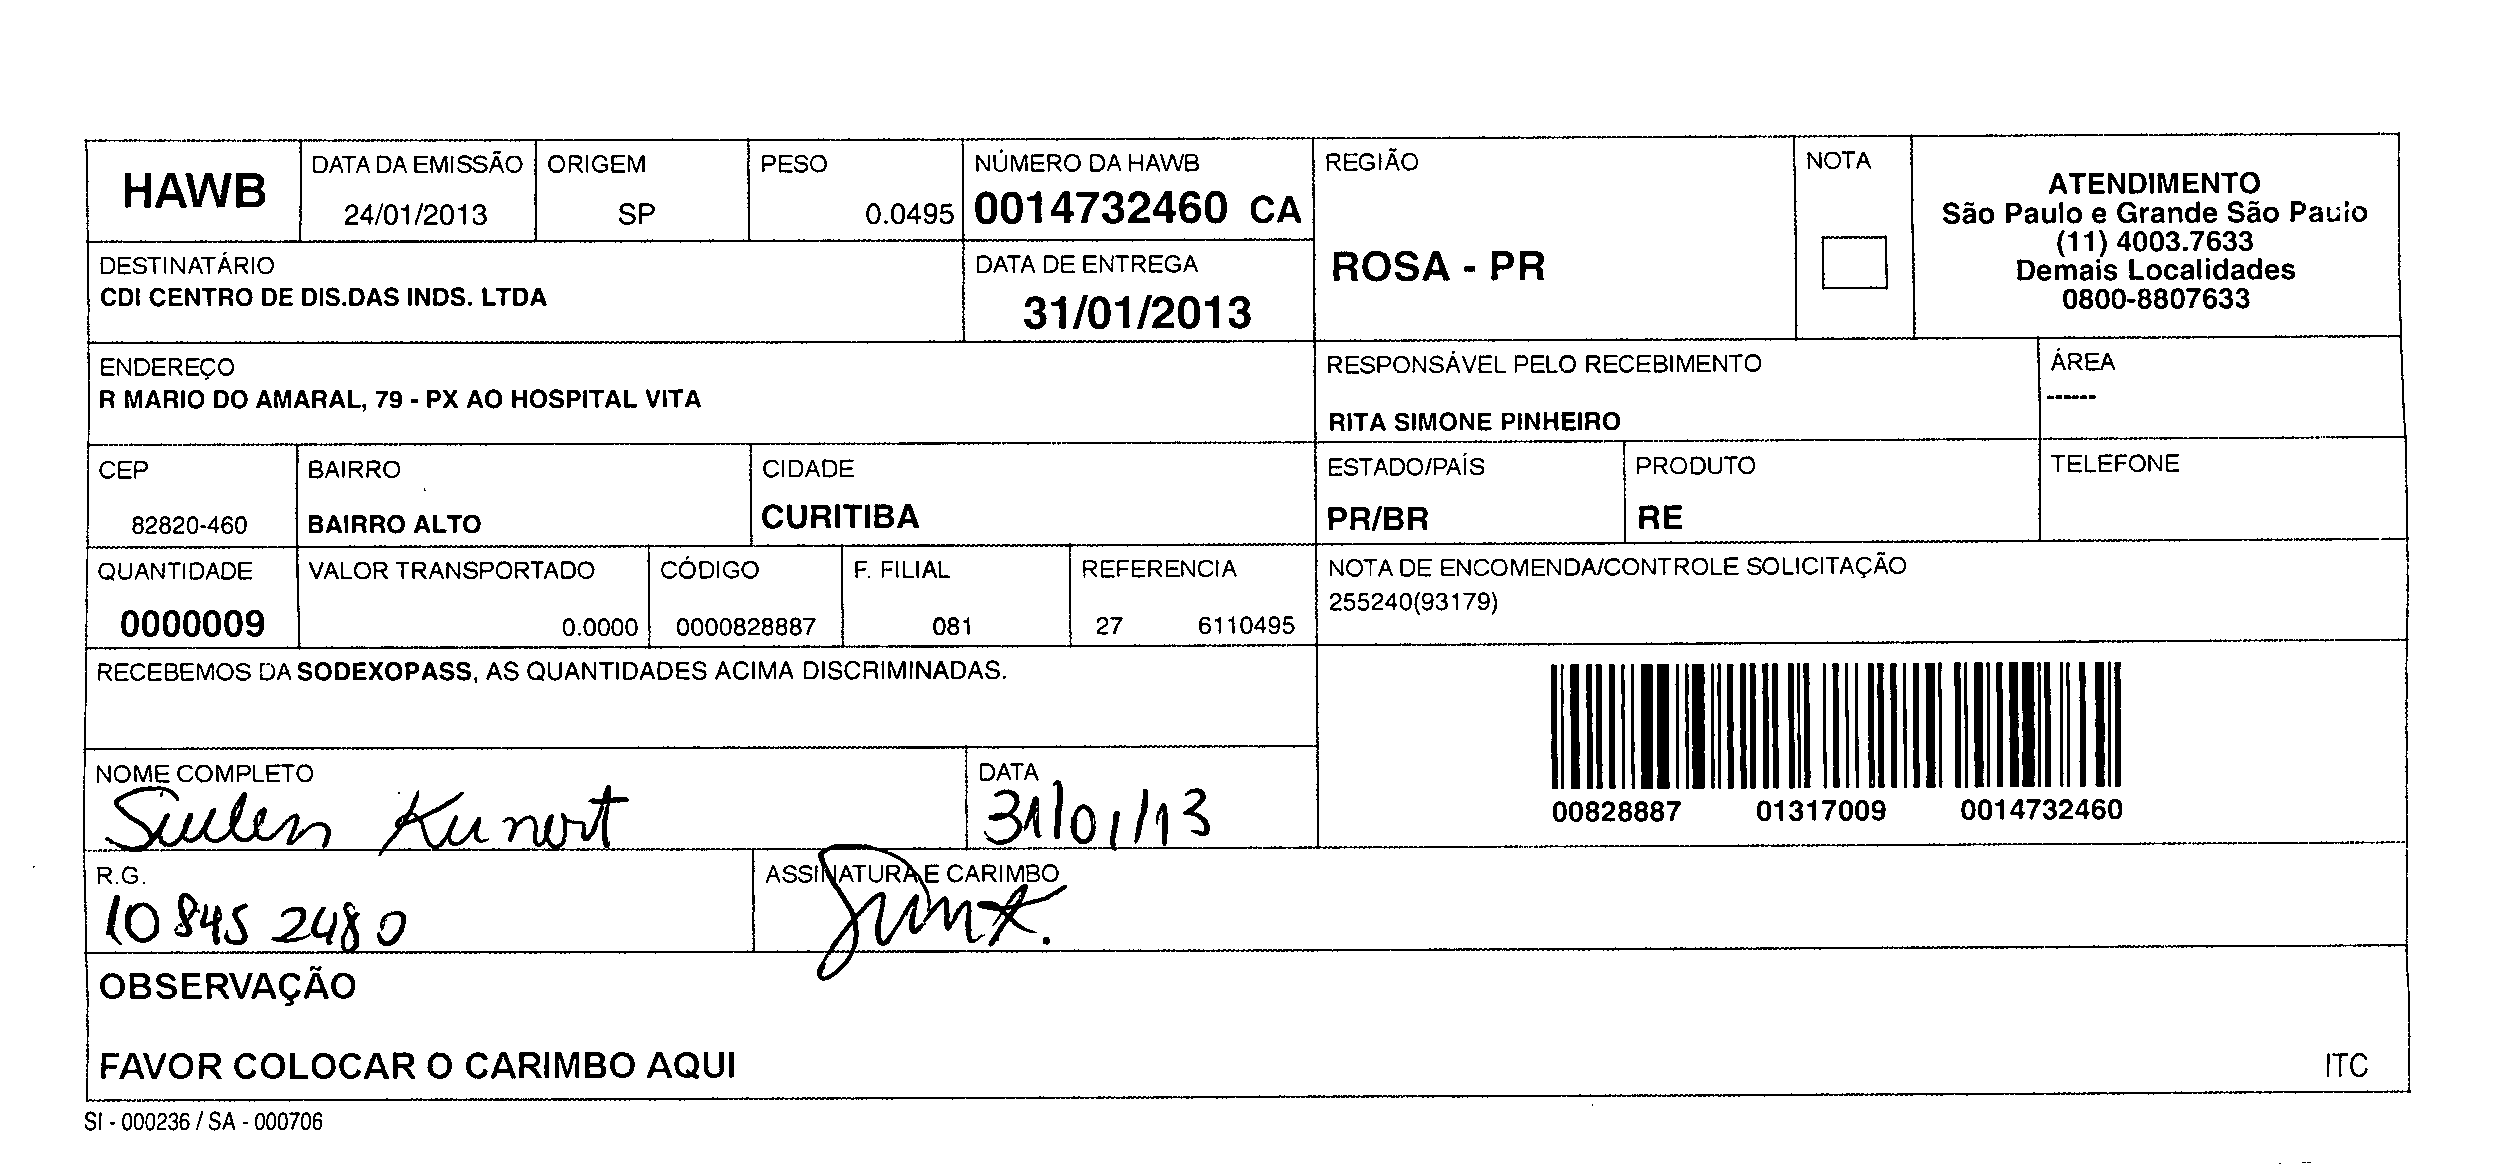 HAWB
DATA DA EMISSÃO
24/01/2013
ORIGEM
SP
PESO
0.0495
NÚMERO DA HAWB
0014732460 CA
REGIÃO
ROSA - PR
NOTA
ATENDIMENTO
São Paulo e Grande São Paulo
(11) 4003.7633
Demais Localidades
0800-8807633
DESTINATÁRIO
CDI CENTRO DE DIS.DAS INDS. LTDA
DATA DE ENTREGA
31/01/2013
ENDEREÇO
R MARIO DO AMARAL, 79 - PX AO HOSPITAL VITA
RESPONSÁVEL PELO RECEBIMENTO
RITA SIMONE PINHEIRO
ÁREA
------
CEP
82820-460
BAIRRO
BAIRRO ALTO
CIDADE
CURITIBA
ESTADO/PAÍS
PR/BR
PRODUTO
RE
TELEFONE
QUANTIDADE
0000009
VALOR TRANSPORTADO
0.0000
CÓDIGO
0000828887
F. FILIAL
081
REFERENCIA
27 6110495
NOTA DE ENCOMENDA/CONTROLE SOLICITAÇÃO
255240(93179)
RECEBEMOS DA SODEXOPASS, AS QUANTIDADES ACIMA DISCRIMINADAS.
00828887 01317009 0014732460
NOME COMPLETO
Suelen Kunert
DATA
31/01/13
R.G.
10845 2480
ASSINATURA E CARIMBO
OBSERVAÇÃO
FAVOR COLOCAR O CARIMBO AQUI
ITC
SI - 000236 / SA - 000706